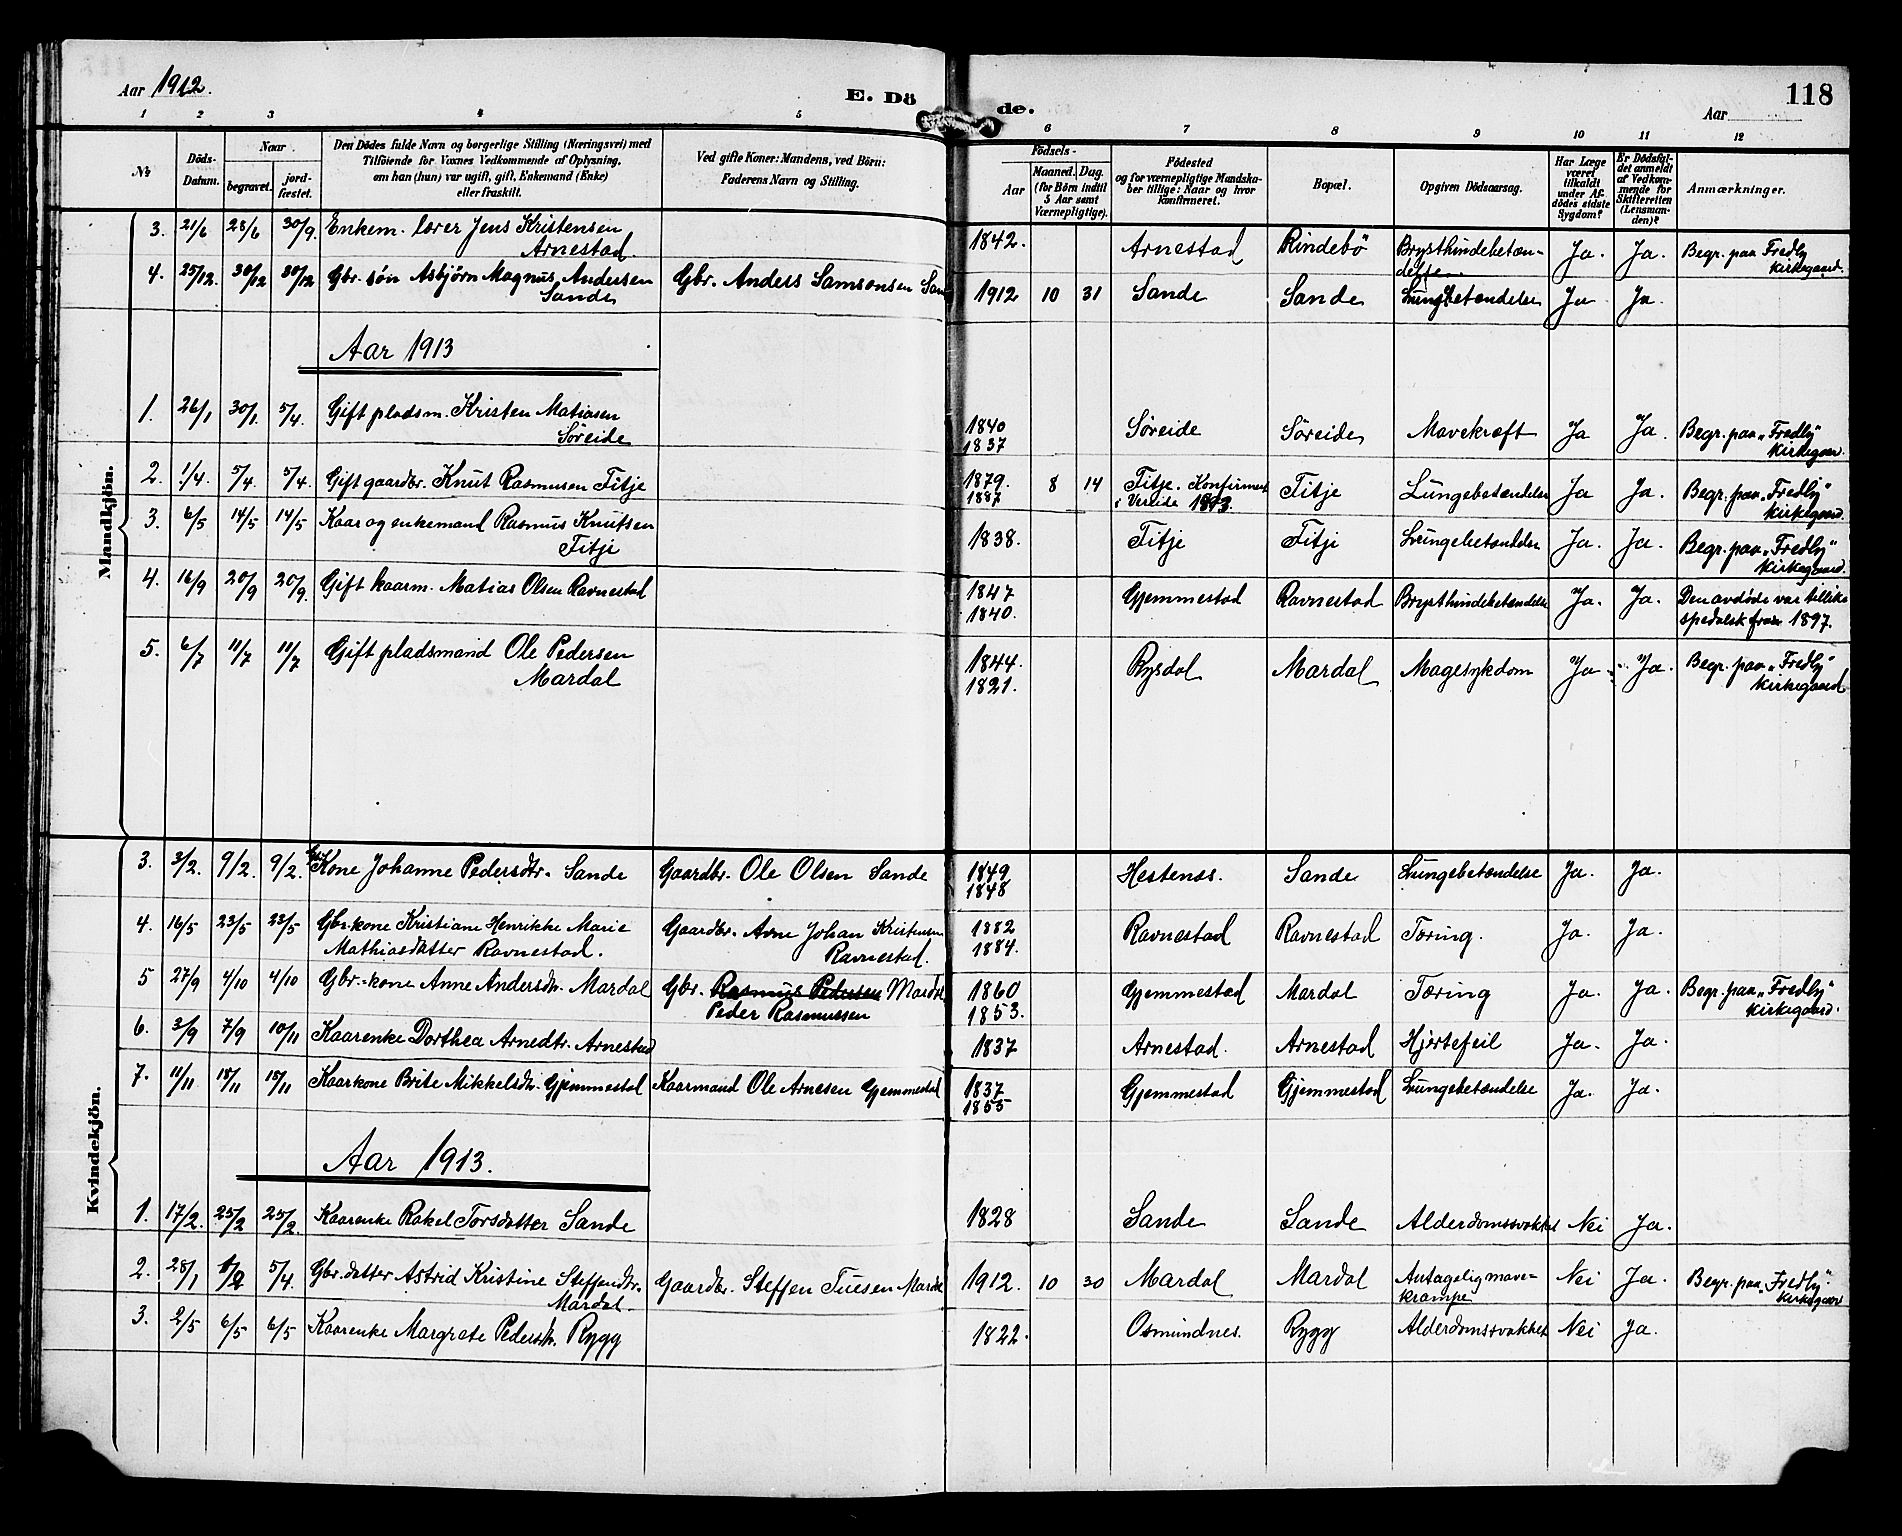 Aar 1912.
E. Dö de.
Aar
118
1 2 3 4 5 6 7 8 9 10 11 12
No
Döds-Datum.
Naar
begravet.
jord-fæstet.
Den Dödes fulde Navn og borgerlige Stilling (Næringsvei) med
Tilföiende for Voxnes Vedkommende af Oplysning,
om han (hun) var ugift, gift, Enkemand (Enke)
eller fraskilt.
Ved gifte Koner: Mandens, ved Börn:
Faderens Navn og Stilling.
Födsels-
Aar
Maaned. Dag.
(for Börn indtil
5 Aar samt
Værnepligtige).
Födested
og for værnepligtige Mandska-
ber tillige: Naar og hvor
konfirmeret.
Bopæl.
Opgiven Dödsaarsag.
Har Læge
været
tilkaldt
under Af-
dödes sidste
Sygdom?
Er Dödsfal-
det anmeldt
af Vedkom-
mende for
Skifteretten
(Lensman-
den)?
Anmærkninger.
Mandkjön.
3. 21/6 28/6 30/9. Enkem. lærer Jens Kristensen Arnestad. 1842. Arnestad Rindebö Brysthindebetæn-delse Ja. Ja. Begr. paa Fredly kirkegaard.
4. 25/12. 30/12 30/12 Gbr. søn Asbjørn Magnus Andersen Sande Gbr. Anders Samsonsen San 1912 10 31 Sande Sande Lungebetændelse Ja Ja
Aar 1913
1. 26/1 30/1. 5/4. Gift pladsm. Kristen Matiasen Søreide 1840 1837 Søreide Søreide Mavekræft Ja Ja. Begr. paa "Fredly" kirkegaar
2. 1/4. 5/4 5/4. Gift gaardbr. Knut Rasmusen Fitje 1879. 1887 8 14 Fitje. Konfirmert i Vereide 1893. Fitje Lungebetændelse Ja Ja. Begr. paa "Fredly" kirkegaard.
3. 6/5 14/5 14/5 Kaar og enkemand Rasmus Knutsen Fitje 1838. Fitje Fitje Lungebetændelse Ja. Ja. Begr. paa "Fredly" kirkegaard.
4. 16/9 20/9 20/9. Gift kaarm. Matias Olsen Ravnestad 1847 1840. Gjemmestad Ravnestad Brysthindebetændelse Ja. Ja. Den avdøde var tillike spedalsk fra 1897.
5. 6/7 11/7 11/7 Gift pladsmand Ole Pedersen Mardal 1844. 1821. Rysdal Mardal Magesykdom Ja Ja. Begr. paa "Fredly" kirkegaard
Kvindekjön.
3. 3/2. 9/2. 9/2. Kone Johanne Pedersdtr. Sande Gaardbr. Ole Olsen Sande 1849 1848 Hestenes. Sande Lungebetændelse Ja. Ja.
4. 16/5 23/5 23/5 Gbr.kone Kristiane Henrikke Marie Mathiasdatter Ravnestad. Gaardbr. Arne Johan Kristensen Ravnestad. 1882 1884. Ravnestad Ravnestad Tæring. Ja. Ja.
5 27/9 4/10 4/10 Gbr.-kone Anne Andersdtr. Mardal Gbr. Rasmus Pedersen Mardal Peder Rasmussen 1860 1853. Gjemmestad Mardal Tæring Ja. Ja. Begr. paa "Fredly" kirkegaard.
6. 3/9 7/9 10/11 Kaarenke Dorthea Arnedtr. Arnestad 1837 Arnestad. Arnestad Hjertefeil Ja. Ja.
7. 11/11 18/11 18/11 Kaarkone Brite Mikkelsdtr. Gjemmestad Kaarmand Ole Arnesen Gjemmestad 1837 1855 Gjemmestad Gjemmestad Lungebetændelse Ja. Ja.
Aar 1913.
1. 17/2. 25/2 25/2. Kaarenke Rakel Torsdatter Sande 1828 Sande Sande Alderdomssvakhet Nei Ja.
2. 28/1 5/4. Gbr.datter Astrid Kristine Steffendtr. Mardal. Gaardbr. Steffen Tuesen Mardal 1912. 10 30 Mardal Mardal Antagelig mave-krampe Nei Ja. Begr. paa "Fredly" kirkegaar
3. 2/5 6/5 6/5 Kaarenke Margrete Pedersdtr. Rygg 1822. Osmundnes. Rygg Alderdomssvakhet Nei Ja.